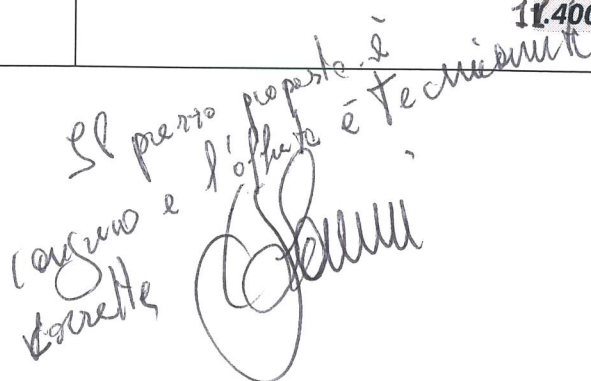 11.400
Il prezzo proposto è
congruo e l'offerta è tecnicamente
corretta